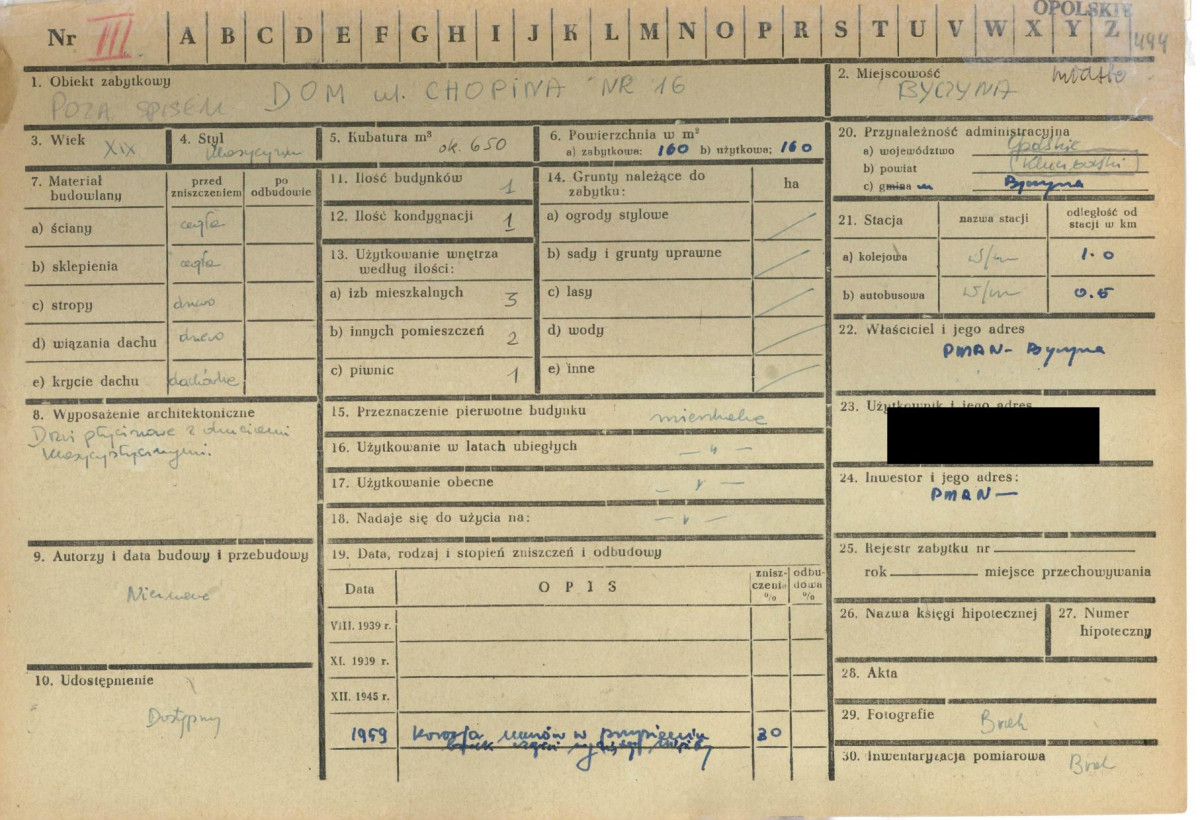 OPOLSKIE
Nr III A B C D E F G H I J K L M N O P R S T U V W X Y Z
1. Obiekt zabytkowy
POZA SPISEM DOM ul. CHOPINA NR 16
2. Miejscowość
BYCZYNA
3. Wiek XIX
4. Styl
klasycyzm
5. Kubatura m³ ok. 650
6. Powierzchnia w m²
a) zabytkowa: 160 b) użytkowa: 160
7. Materiał budowlany
przed zniszczeniem
po odbudowie
a) ściany cegła
b) sklepienia cegła
c) stropy drewno
d) wiązania dachu drewno
e) krycie dachu dachówka
8. Wyposażenie architektoniczne
Drzwi płycinowe z
klasycystycznymi.
9. Autorzy i data budowy i przebudowy
Nieznane
10. Udostępnienie
Dostępny
11. Ilość budynków 1
12. Ilość kondygnacji 1
13. Użytkowanie wnętrza
według ilości:
a) izb mieszkalnych 3
b) innych pomieszczeń 2
c) piwnic 1
14. Grunty należące do
zabytku:
ha
a) ogrody stylowe
b) sady i grunty uprawne
c) lasy
d) wody
e) inne
15. Przeznaczenie pierwotne budynku mieszkalne
16. Użytkowanie w latach ubiegłych — " —
17. Użytkowanie obecne — " —
18. Nadaje się do użycia na: — " —
19. Data, rodzaj i stopień zniszczeń i odbudowy
Data
OPIS
znisz-
czenie
%
odbu-
dowa
%
VIII. 1939 r.
XI. 1939 r.
XII. 1945 r.
1959 Korozja murów w przyziemiu 30
brak części
20. Przynależność administracyjna
a) województwo Opolskie
b) powiat (Kluczborski)
c) gmina m Byczyna
21. Stacja
nazwa stacji
odległość od
stacji w km
a) kolejowa w/m 1.0
b) autobusowa w/m 0.5
22. Właściciel i jego adres
PMRN - Byczyna
23. Użytkownik i jego adres
24. Inwestor i jego adres:
PMRN —
25. Rejestr zabytku nr
rok miejsce przechowywania
26. Nazwa księgi hipotecznej
27. Numer
hipoteczny
28. Akta
29. Fotografie Brak
30. Inwentaryzacja pomiarowa Brak